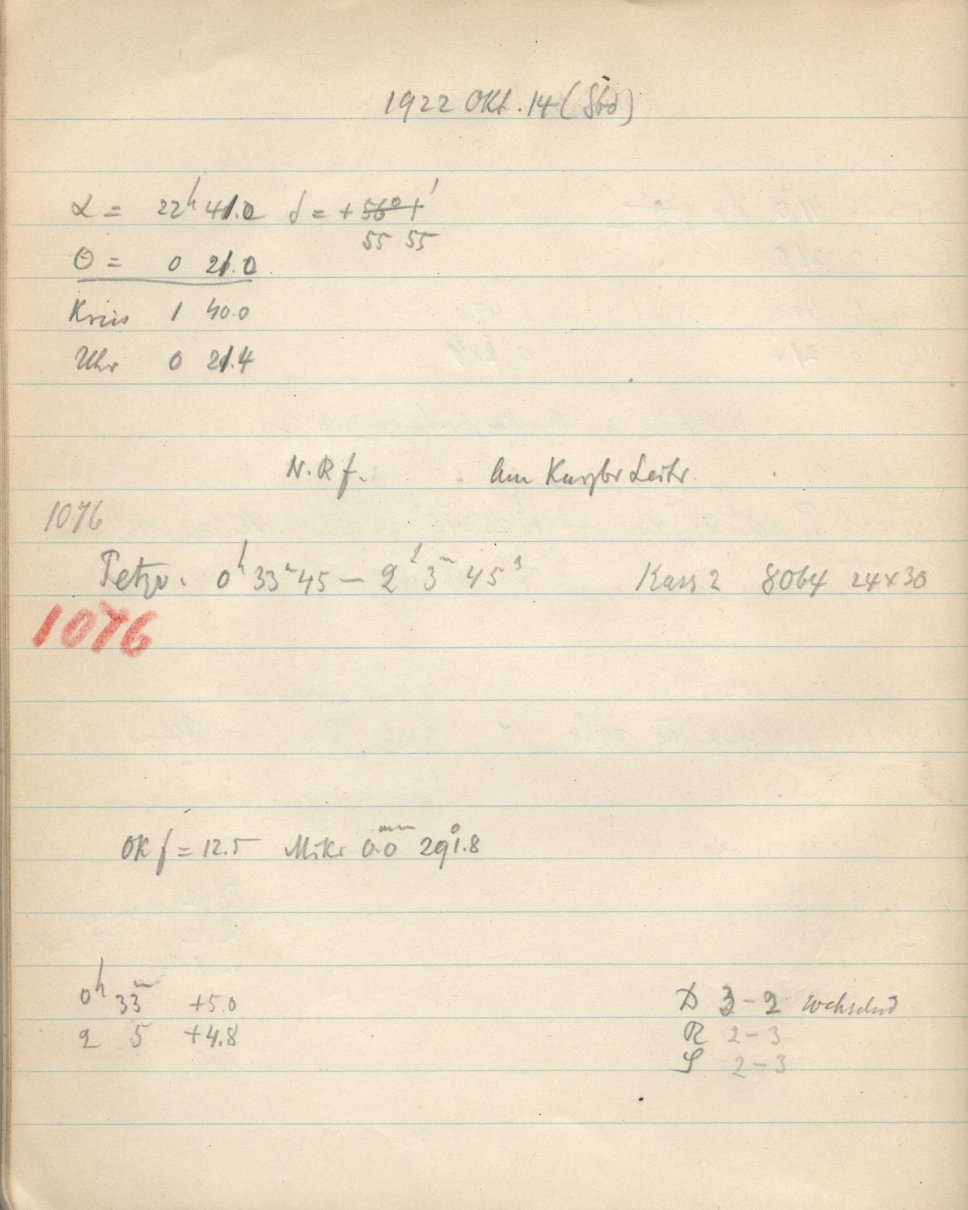 1922 Okt. 14 (Sbd)
α = 22h 41.0 δ = +56° 1'
55 55
Θ = 0 21.0
Kreis 1 40.0
Uhr 0 21.4
N. R f.
1076
Petzv. 0h 33m 45 – 2h 3m 45s Kass 2 8064 24×30
1076
OK f = 12.5 Mikr 0.0 mm 291°.8
0h 33m +5.0 D 3–2 wechselnd
2 5 +4.8 R 2–3
S 2–3